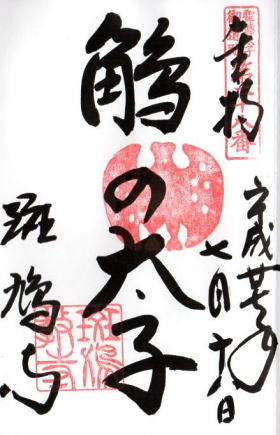 奉拝
平成廿七年
七月十八日
鵤の太子
斑鳩寺
斑鳩寺